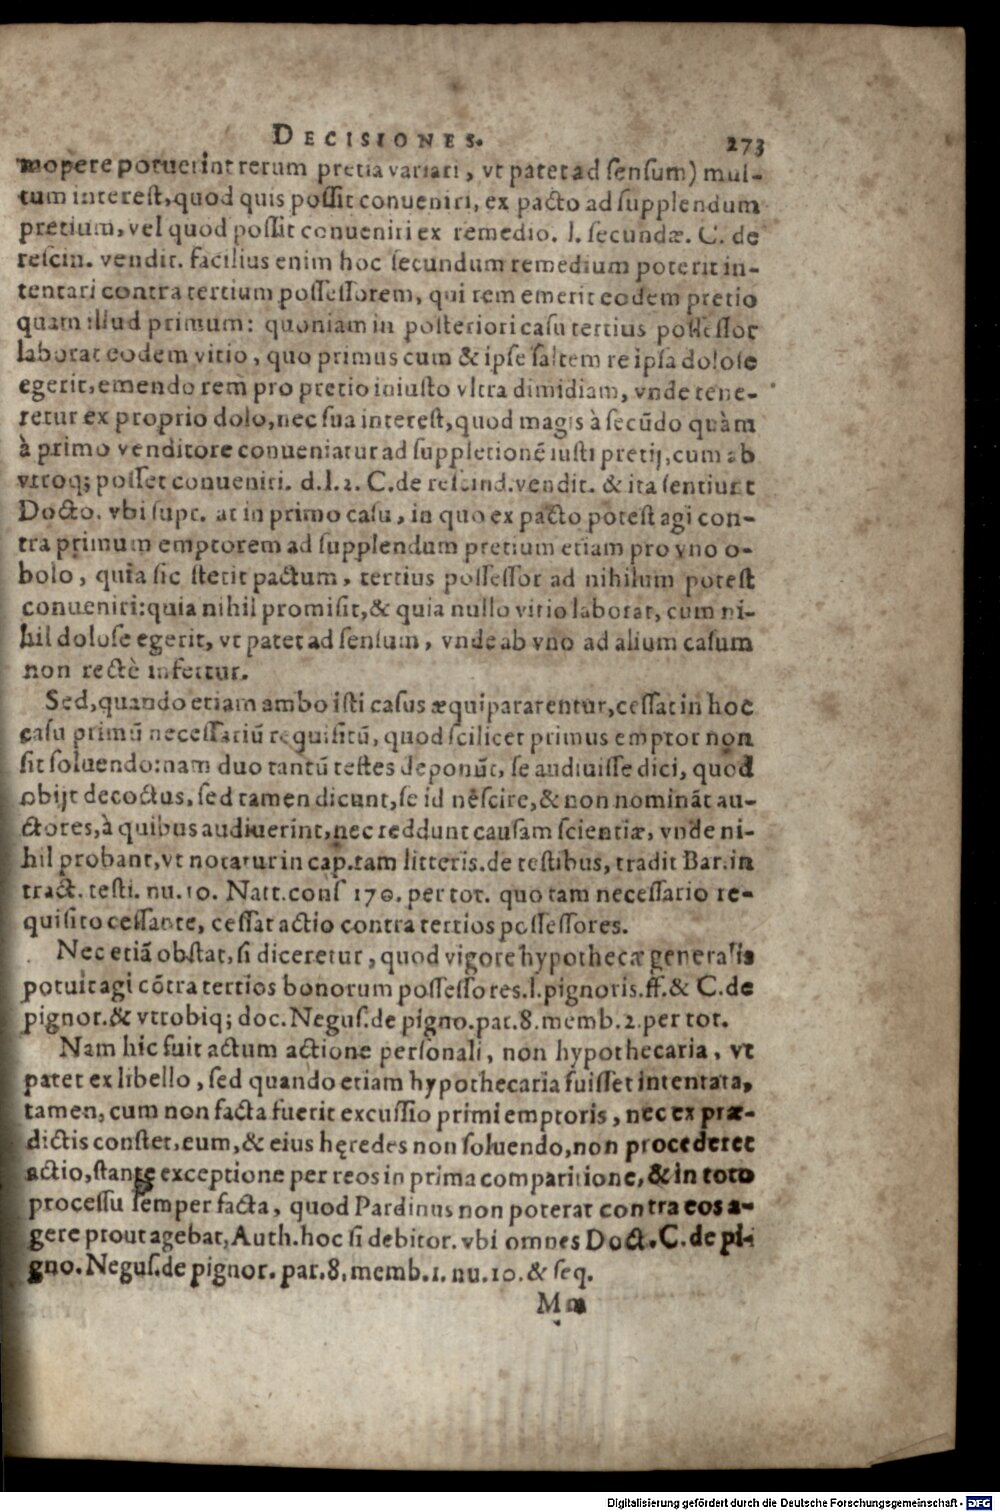 DECISIONES. 273
mopere potuerint rerum pretia variari, vt patet ad sensum) mul-
tum interest, quod quis possit conueniri, ex pacto ad supplendum
pretium, vel quod possit conueniri ex remedio. l. secundæ. C. de
rescin. vendit. facilius enim hoc secundum remedium poterit in-
tentari contra tertium possessorem, qui rem emerit eodem pretio
quam illud primum: quoniam in posteriori casu tertius possessor
laborat eodem vitio, quo primus cum & ipse saltem re ipsa dolose
egerit, emendo rem pro pretio iniusto vltra dimidiam, vnde tene-
retur ex proprio dolo, nec sua interest, quod magis à secūdo quàm
à primo venditore conueniatur ad suppletionē iusti pretij, cum ab
vtroq; posset conueniri. d.l.2. C. de rescind. vendit. & ita sentiunt
Docto. vbi supr. at in primo casu, in quo ex pacto potest agi con-
tra primum emptorem ad supplendum pretium etiam pro vno o-
bolo, quia sic stetit pactum, tertius possessor ad nihilum potest
conueniri: quia nihil promisit, & quia nullo vitio laborat, cum ni-
hil dolose egerit, vt patet ad sensum, vnde ab vno ad alium casum
non rectè infertur.
Sed, quando etiam ambo isti casus æquipararentur, cessat in hoc
casu primū necessariū requisitū, quod scilicet primus emptor non
sit soluendo: nam duo tantū testes deponūt, se audiuisse dici, quod
obijt decoctus, sed tamen dicunt, se id nescire, & non nomināt au-
ctores, à quibus audiuerint, nec reddunt causam scientiæ, vnde ni-
hil probant, vt notatur in cap. tam litteris. de testibus, tradit Bar. in
tract. testi. nu. 10. Natt. cons 170. per tot. quo tam necessario re-
quisito cessante, cessat actio contra tertios possessores.
Nec etiā obstat, si diceretur, quod vigore hypothecæ generalis
potuit agi cōtra tertios bonorum possessores. l. pignoris. ff. & C. de
pignor. & vtrobiq; doc. Negus. de pigno. par. 8. memb. 2. per tot.
Nam hic fuit actum actione personali, non hypothecaria, vt
patet ex libello, sed quando etiam hypothecaria fuisset intentata,
tamen, cum non facta fuerit excussio primi emptoris, nec ex præ-
dictis constet, eum, & eius hęredes non soluendo, non procederet
actio, stante exceptione per reos in prima comparitione, & in toto
processu semper facta, quod Pardinus non poterat contra eos a-
gere prout agebat, Auth. hoc si debitor. vbi omnes Doct. C. de pi-
gno. Negus. de pignor. par. 8. memb. 1. nu. 10. & seq.
Mm
Digitalisierung gefördert durch die Deutsche Forschungsgemeinschaft - DFG